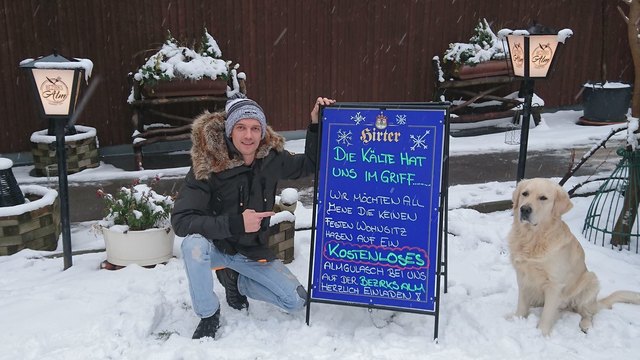 Hirter
DIE KÄLTE HAT
UNS IM GRIFF......
WIR MÖCHTEN ALL
JENE DIE KEINEN
FESTEN WOHNSITZ
HABEN AUF EIN
KOSTENLOSES
ALMGULASCH BEI UNS
AUF DER BEZIRKSALM
HERZLICH EINLADEN
Alm
Alm